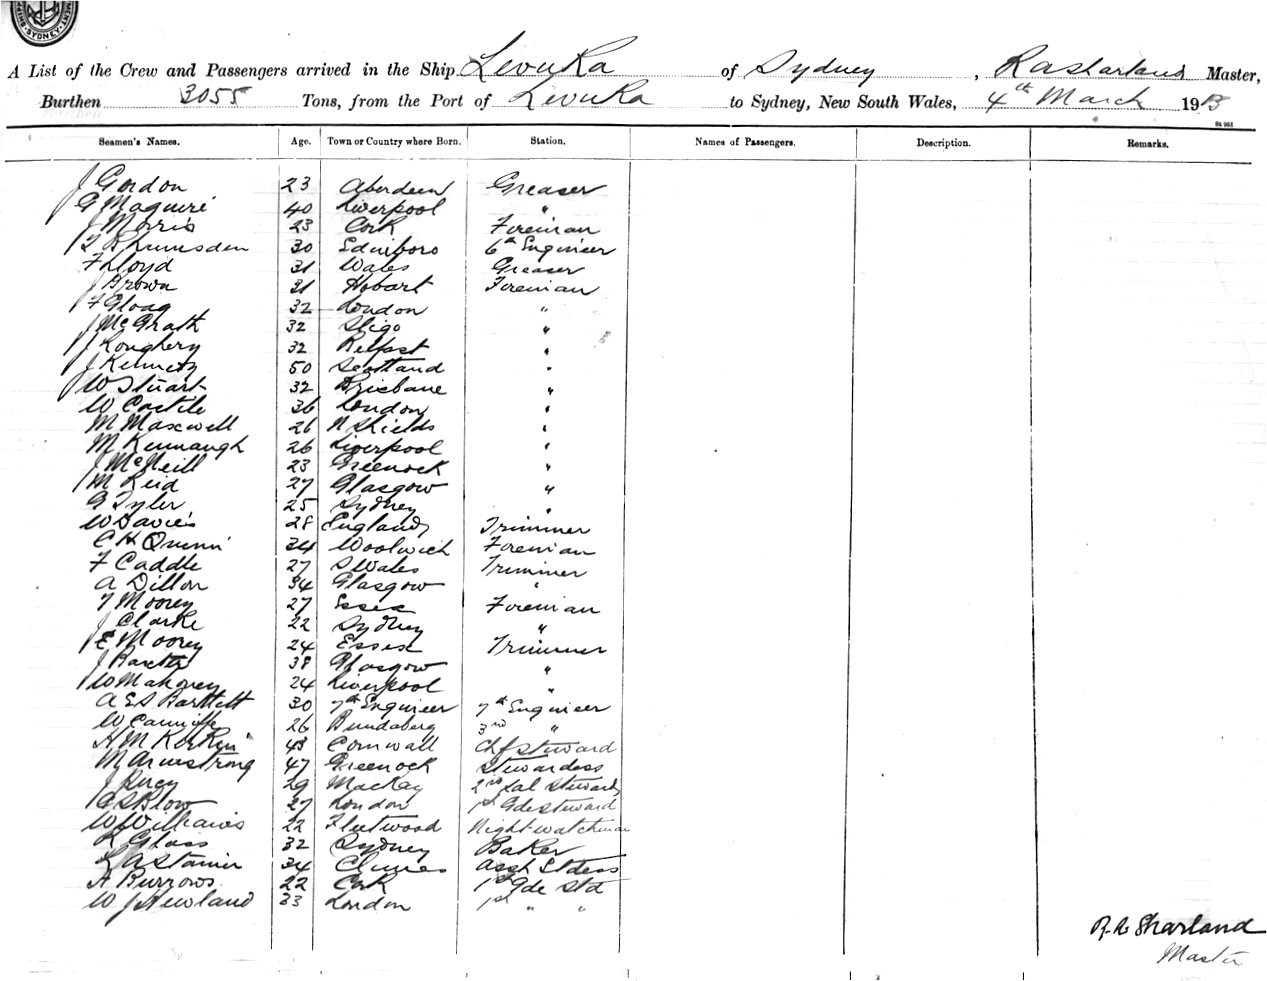 SYDNEY
A List of the Crew and Passengers arrived in the Ship Levuka of Sydney, R A Sharland Master,
Burthen 3055 Tons, from the Port of Levuka to Sydney, New South Wales, 4th March 1913
St 961
Seamen's Names. Age. Town or Country where Born. Station. Names of Passengers. Description. Remarks.
J Gordon 23 Aberdeen Greaser
G Maguire 40 Liverpool "
J Morris 23 Cork Fireman
T B Lumsden 30 Edinboro 6th Engineer
F Lloyd 31 Wales Greaser
J Brown 31 Hobart Fireman
F Gloag 32 London "
J McGrath 32 Sligo "
J Loughery 32 Belfast "
J Kennedy 50 Scotland "
W Stuart 32 Brisbane "
W Castle 36 London "
M Maxwell 26 N Shields "
M Kennaugh 26 Liverpool "
J McNeill 23 Greenock "
M Reid 27 Glasgow "
G Tyler 25 Sydney "
W Davies 28 England Trimmer
C H Quinn 34 Woolwich Fireman
F Caddle 27 S Wales Trimmer
A Dillon 34 Glasgow "
T Moorey 27 Essex Fireman
J Clarke 22 Sydney "
E Moorey 24 Essex Trimmer
J Baxter 38 Glasgow "
W Mahoney 24 Liverpool "
A E S Bartlett 30 7th Engineer 7th Engineer
W Cunliffe 26 Bundaberg 3rd "
H M Korkin 43 Cornwall Chf Steward
M Armstrong 47 Greenock Stewardess
J Percy 29 Mackay 2nd Sal Steward
C S Blow 27 London 1st Gde Steward
W J Williams 22 Fleetwood Night-watchman
R Glass 32 Sydney Baker
L A Stamer 34 Clunes Asst Stdess
A Burrows 22 Cork 1st Gde Std
W J Newland 33 London 1st " "
R. A Sharland
Master